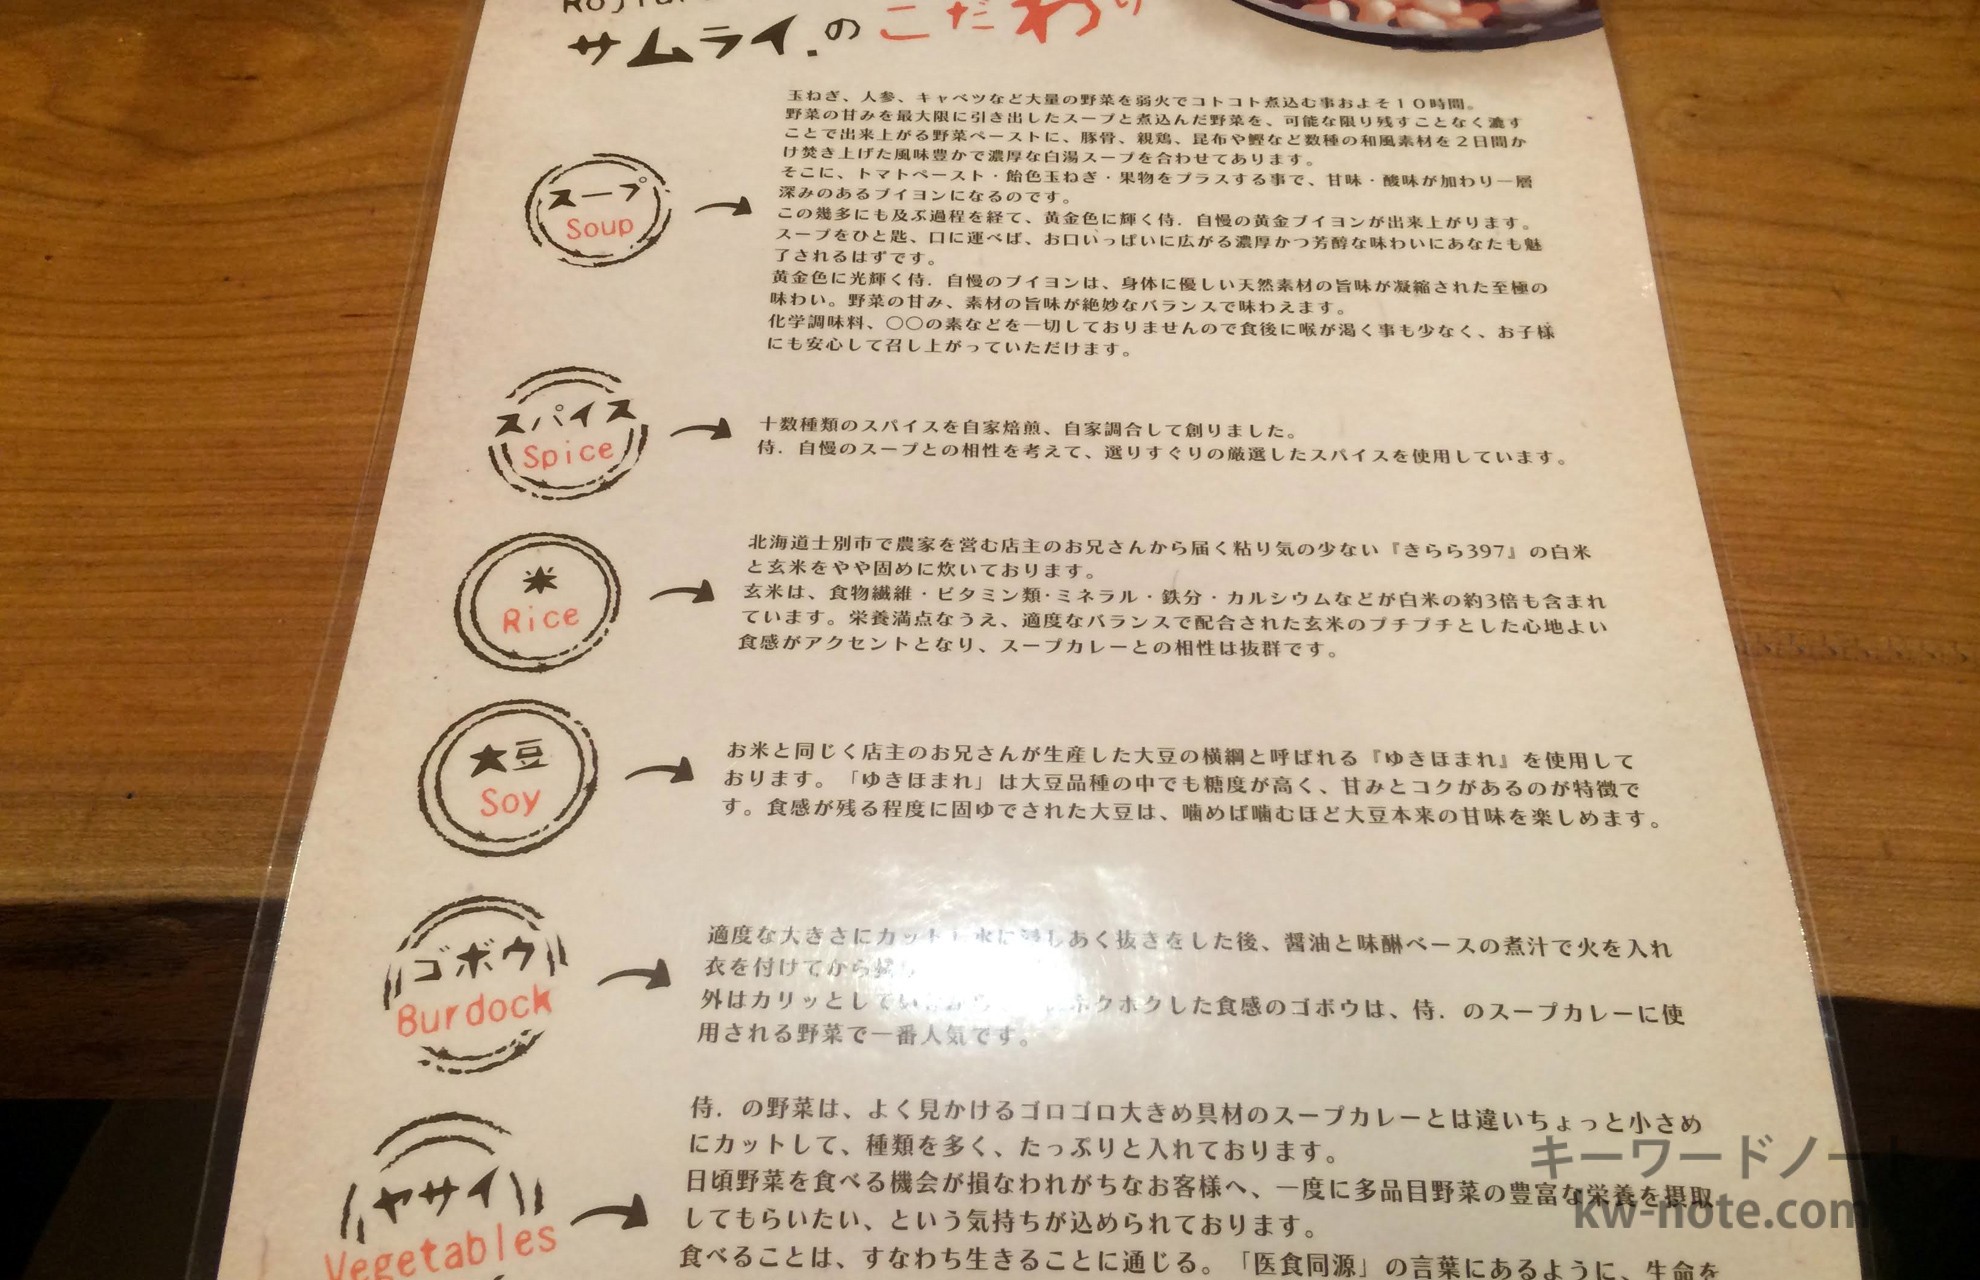 サムライ.のこだわり
スープ
Soup
玉ねぎ、人参、キャベツなど大量の野菜を弱火でコトコト煮込む事およそ10時間。
野菜の甘みを最大限に引き出したスープと煮込んだ野菜を、可能な限り残すことなく漉す
ことで出来上がる野菜ペーストに、豚骨、親鶏、昆布や鰹など数種の和風素材を2日間か
け焚き上げた風味豊かで濃厚な白湯スープを合わせてあります。
そこに、トマトペースト・飴色玉ねぎ・果物をプラスする事で、甘味・酸味が加わり一層
深みのあるブイヨンになるのです。
この幾多にも及ぶ過程を経て、黄金色に輝く侍. 自慢の黄金ブイヨンが出来上がります。
スープをひと匙、口に運べば、お口いっぱいに広がる濃厚かつ芳醇な味わいにあなたも魅
了されるはずです。
黄金色に光輝く侍. 自慢のブイヨンは、身体に優しい天然素材の旨味が凝縮された至極の
味わい。野菜の甘み、素材の旨味が絶妙なバランスで味わえます。
化学調味料、〇〇の素などを一切しておりませんので食後に喉が渇く事も少なく、お子様
にも安心して召し上がっていただけます。
スパイス
Spice
十数種類のスパイスを自家焙煎、自家調合して創りました。
侍. 自慢のスープとの相性を考えて、選りすぐりの厳選したスパイスを使用しています。
米
Rice
北海道士別市で農家を営む店主のお兄さんから届く粘り気の少ない『きらら397』の白米
と玄米をやや固めに炊いております。
玄米は、食物繊維・ビタミン類・ミネラル・鉄分・カルシウムなどが白米の約3倍も含まれ
ています。栄養満点なうえ、適度なバランスで配合された玄米のプチプチとした心地よい
食感がアクセントとなり、スープカレーとの相性は抜群です。
大豆
Soy
お米と同じく店主のお兄さんが生産した大豆の横綱と呼ばれる『ゆきほまれ』を使用して
おります。「ゆきほまれ」は大豆品種の中でも糖度が高く、甘みとコクがあるのが特徴で
す。食感が残る程度に固ゆでされた大豆は、噛めば噛むほど大豆本来の甘味を楽しめます。
ゴボウ
Burdock
適度な大きさにカットし水に浸しあく抜きをした後、醤油と味醂ベースの煮汁で火を入れ
衣を付けてから
外はカリッとして ホクホクした食感のゴボウは、侍. のスープカレーに使
用される野菜で一番人気です。
ヤサイ
Vegetables
侍. の野菜は、よく見かけるゴロゴロ大きめ具材のスープカレーとは違いちょっと小さめ
にカットして、種類を多く、たっぷりと入れております。
日頃野菜を食べる機会が損なわれがちなお客様へ、一度に多品目野菜の豊富な栄養を摂取
してもらいたい、という気持ちが込められております。
食べることは、すなわち生きることに通じる。「医食同源」の言葉にあるように、生命を
キーワードノート
kw-note.com